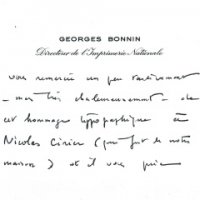 GEORGES BONNIN
Directeur de l'Imprimerie Nationale
vous remercie un peu tardivement
- mais très chaleureusement - de
cet hommage typographique à
Nicolas Cirier (qui fut de notre
maison) et il vous prie